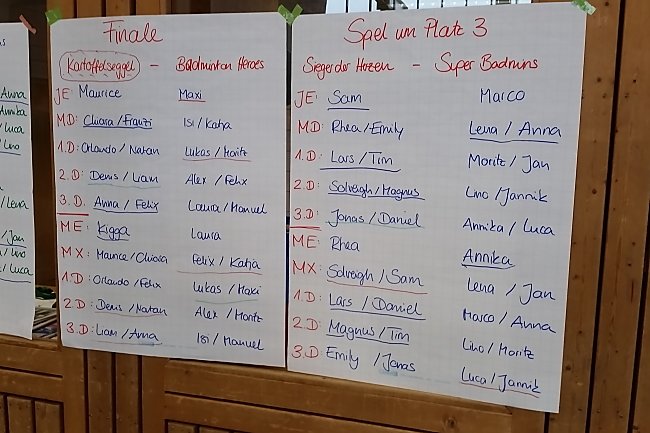 Anna
Annika
Luca
Lino
Lena
Jan
Lino
Luca
Finale
Kartoffelseggel - Badminton Heroes
JE: Maurice Maxi
MD: Chiara/Franzi Isi/Katja
1.D: Orlando/Natan Lukas/Moritz
2.D: Denis/Liam Alex/Felix
3.D: Anna/Felix Laura/Manuel
ME: Kigga Laura
MX: Maurice/Chiara Felix/Katja
1.D: Orlando/Felix Lukas/Maxi
2.D: Denis/Natan Alex/Moritz
3.D: Liam/Anna Isi/Manuel
Spiel um Platz 3
Sieger der Herzen - Super Badmuns
JE: Sam Marco
MD: Rhea/Emily Lena/Anna
1.D: Lars/Tim Moritz/Jan
2.D: Solveigh/Magnus Lino/Jannik
3.D: Jonas/Daniel Annika/Luca
ME: Rhea Annika
MX: Solveigh/Sam Lena/Jan
1.D: Lars/Daniel Marco/Anna
2.D: Magnus/Tim Lino/Moritz
3.D: Emily/Jonas Luca/Jannik